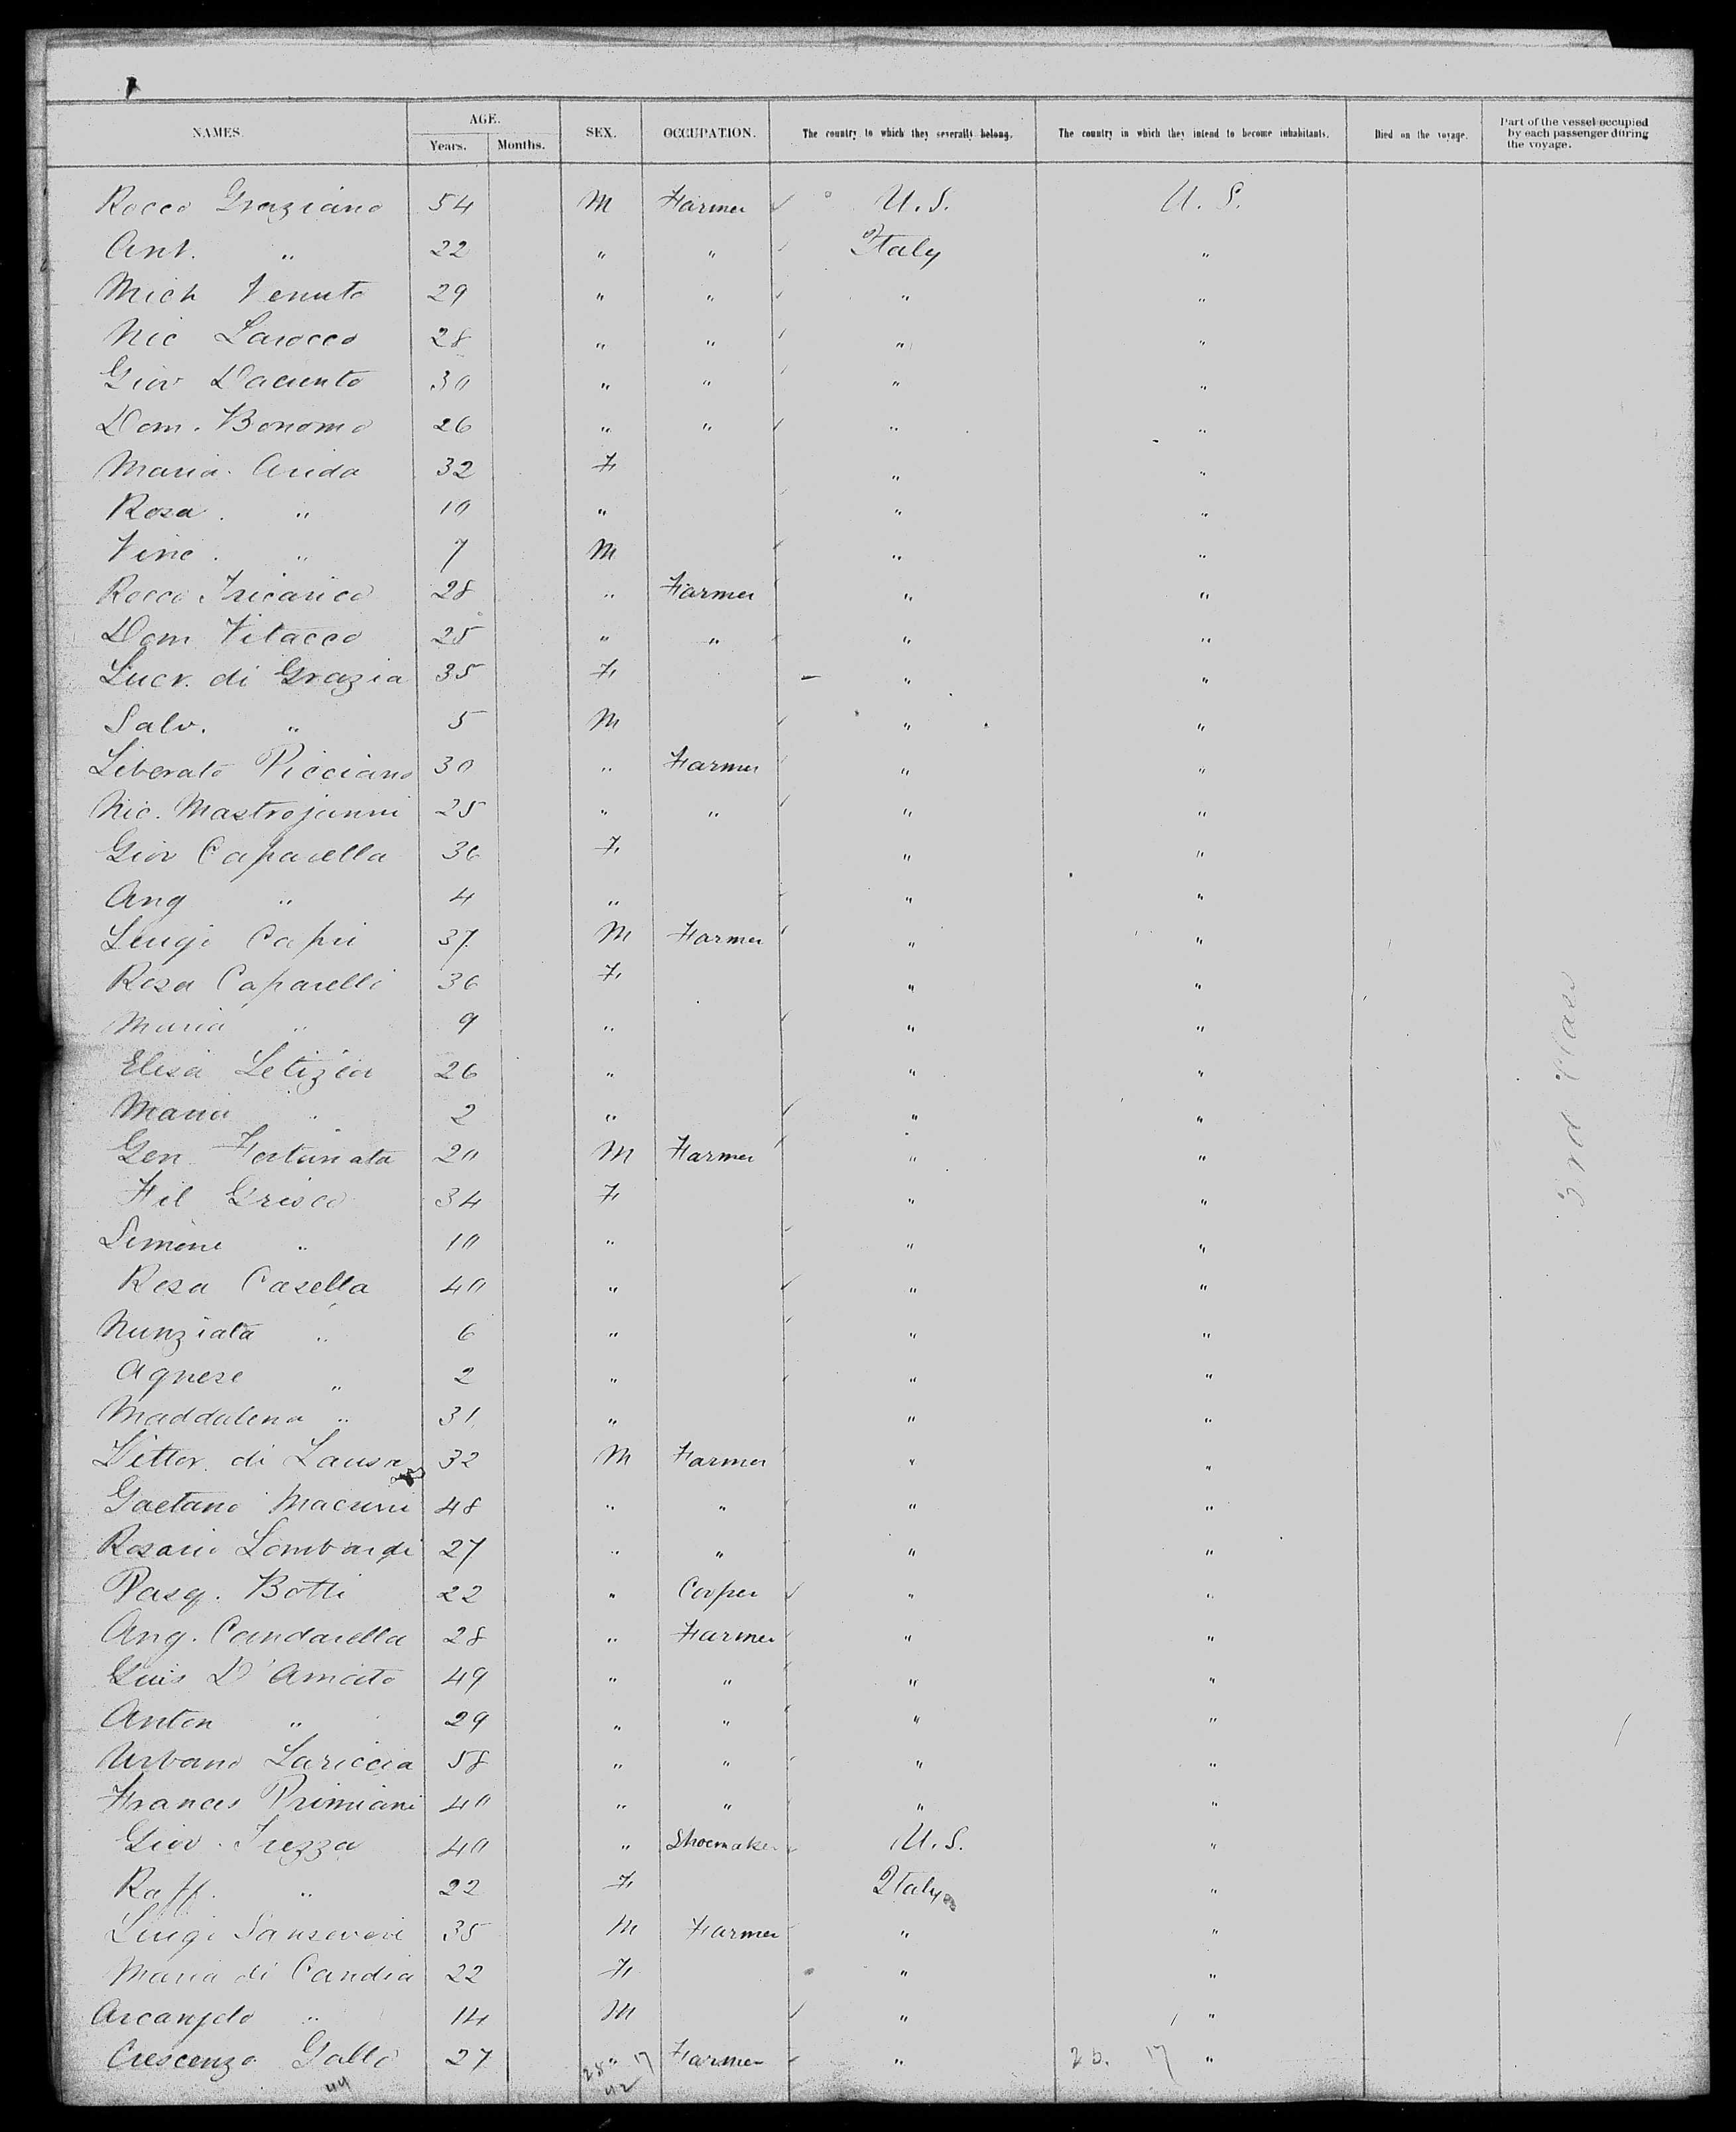 NAMES. AGE. SEX. OCCUPATION. The country to which they severally belong. The country in which they intend to become inhabitants. Died on the voyage. Part of the vessel occupied by each passenger during the voyage.
Years. Months.
Rocco Graziano 54 M Farmer U.S. U.S.
Ant. " 22 " " Italy "
Mich Venuto 29 " " " "
Nic Larocco 28 " " " "
Giov Dacunto 30 " " " "
Dom. Bonomo 26 " " " "
Maria Arida 32 F " "
Rosa " 10 " " "
Vinc. " 7 M " "
Rocco Tricarico 28 " Farmer " "
Dom Vitacco 25 " " " "
Lucr. di Grazia 35 F " "
Salv. " 5 M " "
Liberato Picciano 30 " Farmer " "
Nic. Mastrojanni 25 " " " "
Giov Caparella 36 F " "
Ang " 4 " " "
Luigi Capri 37 M Farmer " "
Rosa Caparelli 36 F " "
Maria " 9 " " "
Elisa Letizia 26 " " "
Maria " 2 " " "
Gen Fortunata 20 M Farmer " "
Fil Grisco 34 F " "
Simone " 10 " " "
Rosa Casella 40 " " "
Nunziata " 6 " " "
Agnese " 2 " " "
Maddalena " 31 " " "
Vittor. di Lausa 32 M Farmer " "
Gaetano 48 " " " "
Rosario Lombardi 27 " " " "
Pasq. Botti 22 " Cooper " "
Ang. Candarella 28 " Farmer " "
Guis D'Amato 49 " " " "
Anton " 29 " " " "
Urbano Lariccia 58 " " " "
Frances Primiani 40 " " " "
Giov. Trezza 40 " Shoemaker U.S. "
Raff. " 22 F Italy "
Luigi 35 M Farmer " "
Maria di Candia 22 F " "
Arcangelo " 14 M " "
Crescenzo Gallo 27 " Farmer " "
44 25 17 42 25. 17
3rd Class